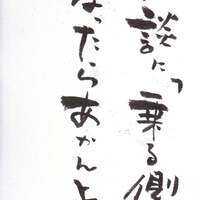 談に「乗る側
なったらあかんよ